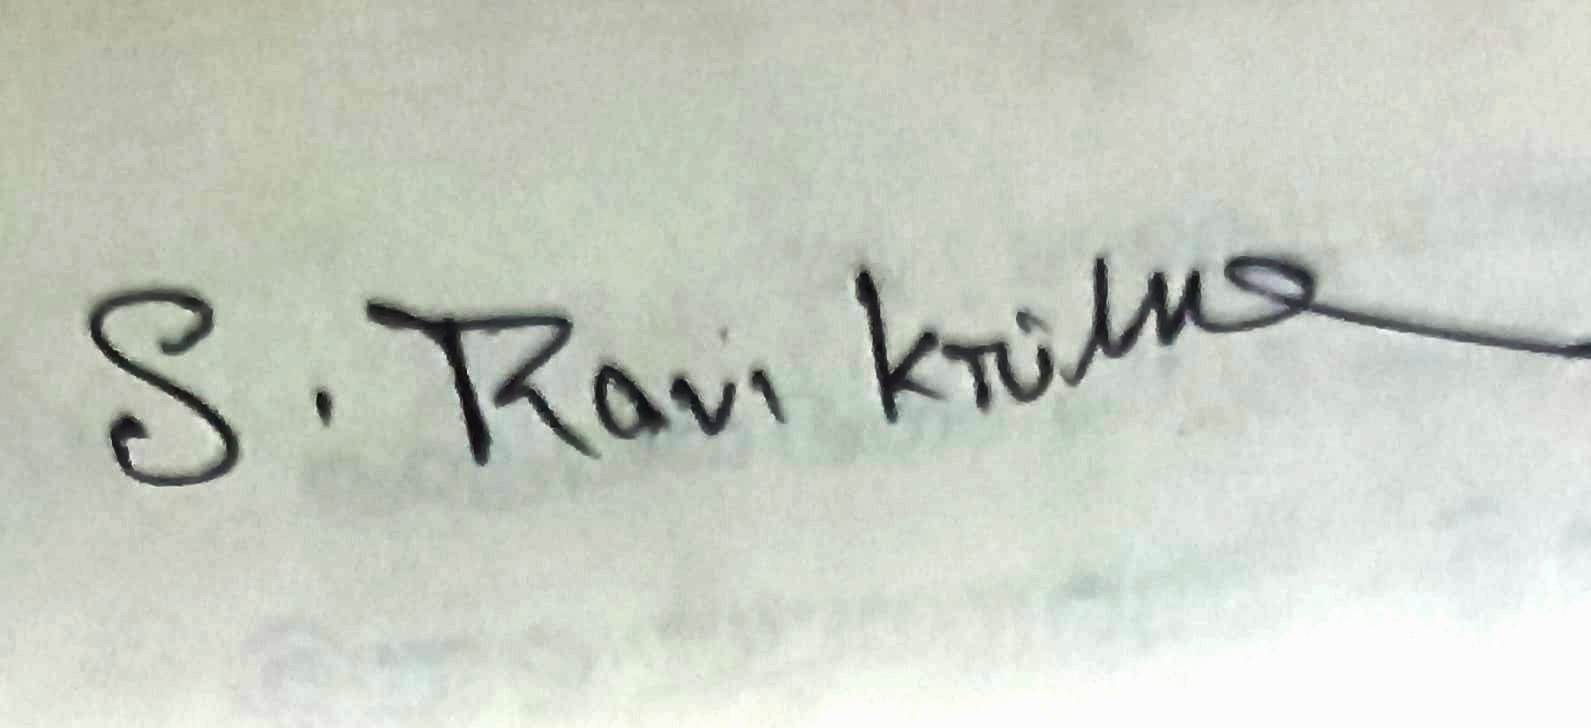 S. Ravi Krishna